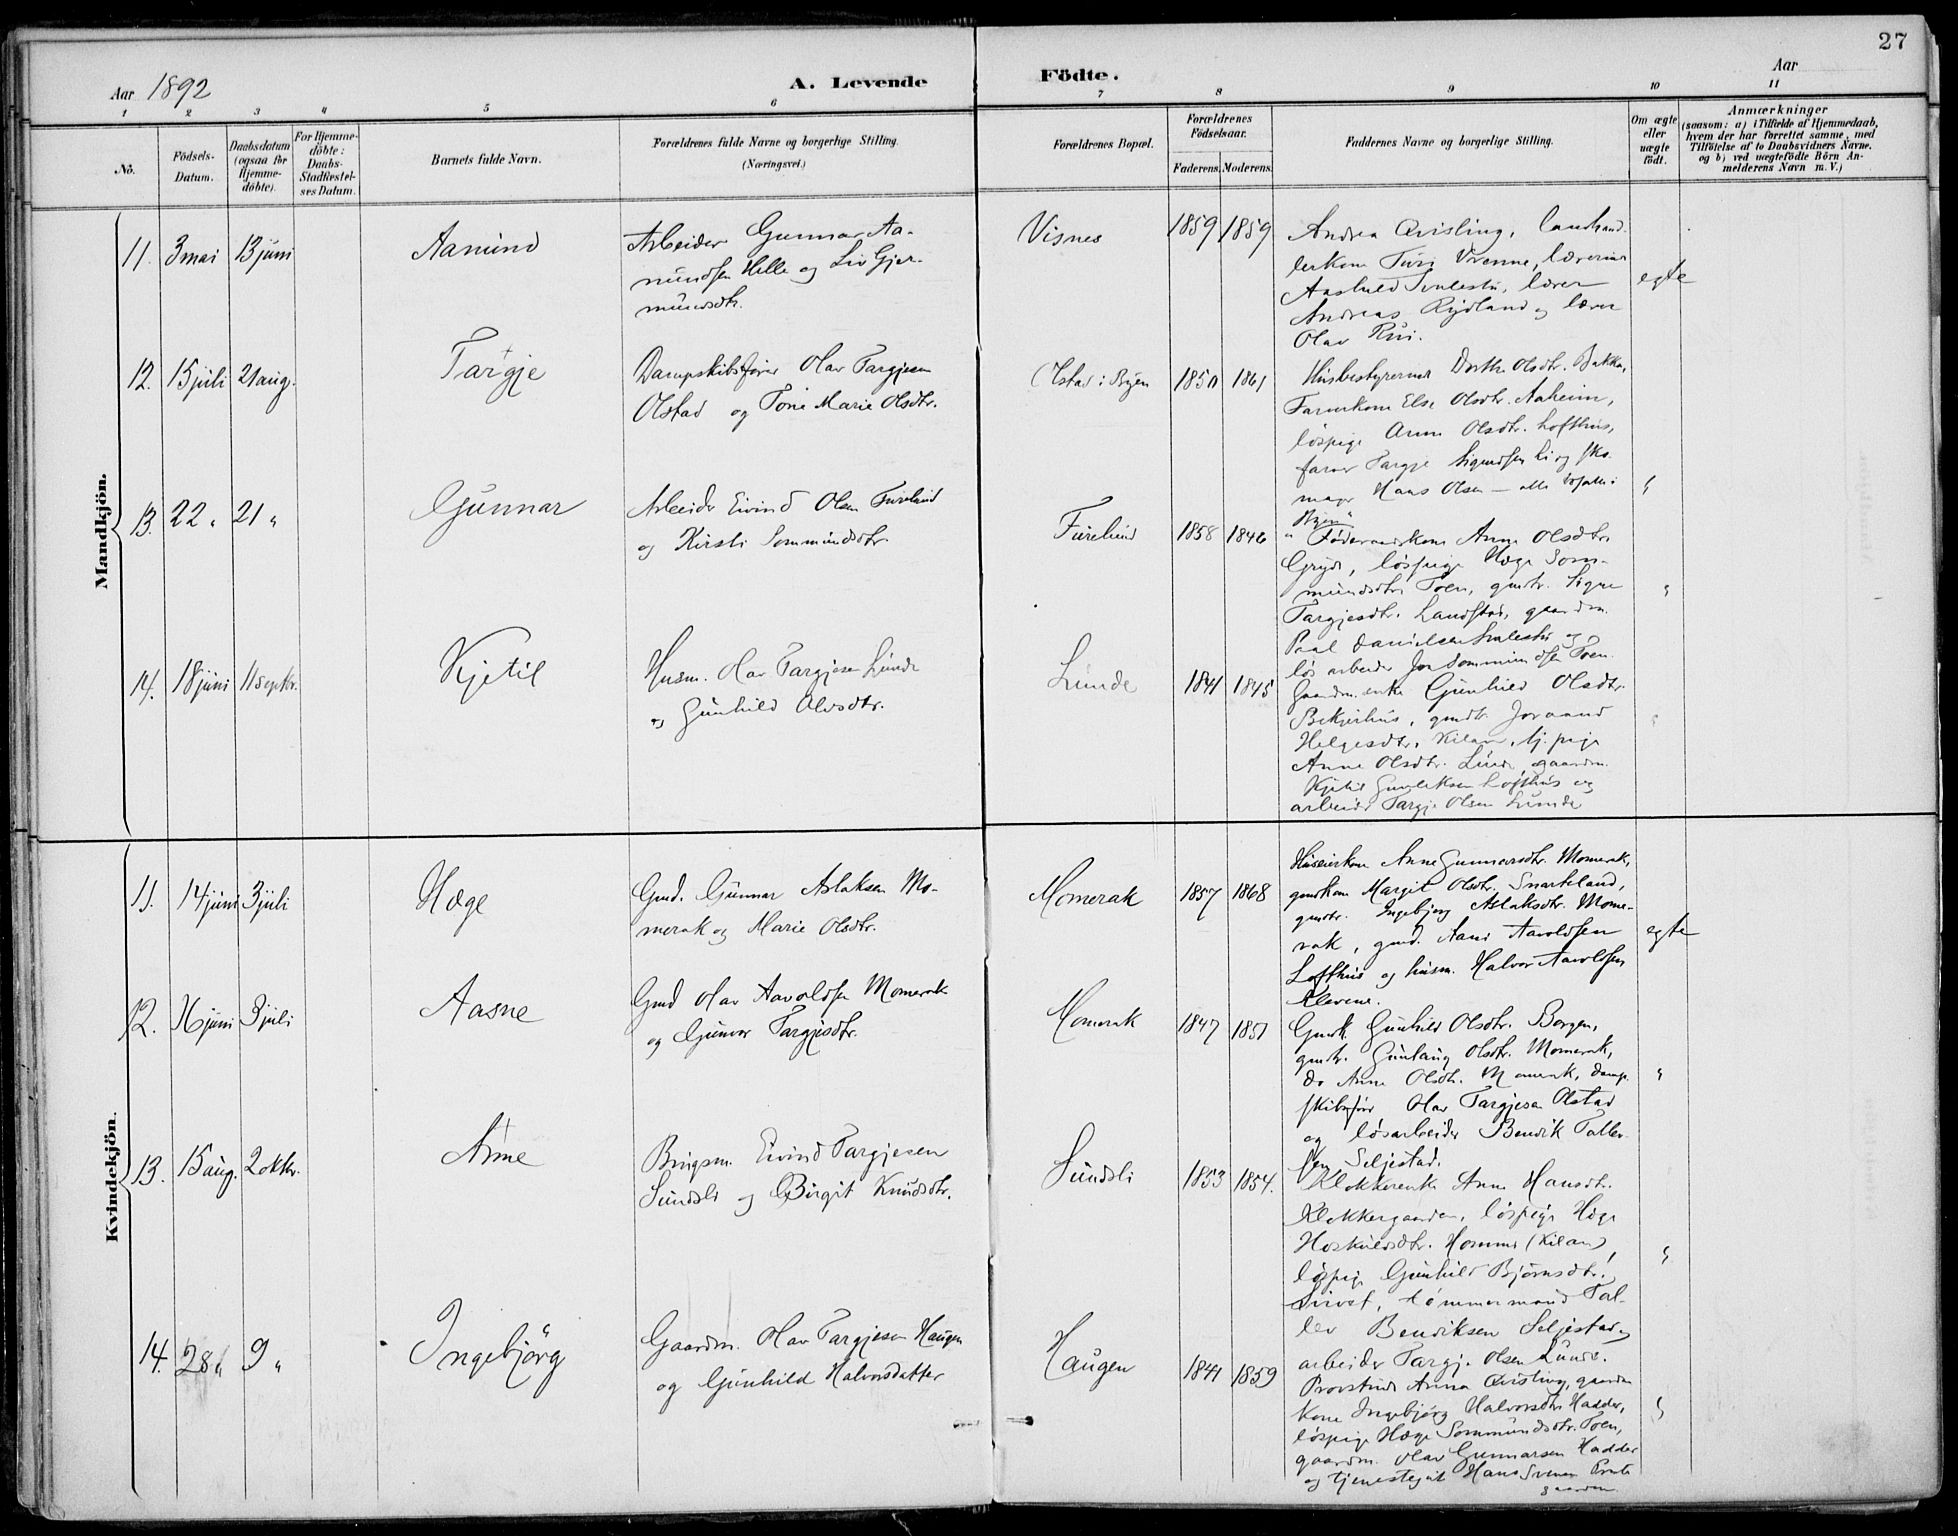 27
Aar 1892
A. Levende
Födte.
Aar
1 2 3 4 5 6 7 8 9 10 11
No.
Födsels-
Datum.
Daabsdatum
(ogsaa for
Hjemme-
döbte).
For Hjemme-
döbte:
Daabs-
Stadfæstel-
ses Datum.
Barnets fulde Navn.
Forældrenes fulde Navne og borgerlige Stilling.
(Næringsvei.)
Forældrenes Bopæl.
Forældrenes
Födselsaar.
Faderens. Moderens.
Faddernes Navne og borgerlige Stilling.
Om ægte
eller
uægte
födt.
Anmærkninger
(saasom: a) i Tilfælde af Hjemmedaab,
hvem der har forrettet samme, med
Tilföielse af to Daabsvidners Navne.
og b) ved uægtefödte Börn An-
melderens Navn m. V.)
Mandkjön.
11. 3 mai 13 juni
Aamund
Arbeider Gunnar Aa-
mundsen Helle og Liv Gjer-
mundsdtr.
Visnes
1859 1859
Andrea Qvisling, landhand-
lerkone Turi Vrenne, lærerinde
Aashild Svalestu, lærer
Andreas Rydland og lærer
Olav Rui.
egte
12. 15 juli 21 aug.
Targje
Dampskibsfører Olav Targjesen
Olstad og Tone Marie Olsdtr.
Olstad i Byen
1850 1861
Husbestyrerinde Dorthe Olsdtr. Bakka,
Farverkone Else Olsdtr. Aaheim,
løspige Anne Olsdtr. Lofthus,
farver Targje Sigurdsen Li og sko-
mager Hans Olsen — alle bosatte i
Byen
"
13. 22 " 21 "
Gunnar
Arbeider Eivind Olsen Furelund
og Kirsti Sommundsdtr.
Furelund
1858 1846
Føderaadskone Anne Olsdtr.
Gryde, løspige Hæge Som-
mundsdtr. Toen, gmdtr. Signe
Targjesdtr. Landstad, gaardm.
Paal Danielsen Svalestu og
løsarbeider Jon Sommundsen Toen.
"
14. 18 juni 11 septbr.
Kjetil
Husm. Olav Targjesen Lunde
og Gunhild Olsdtr.
Lunde
1841 1845
Gaardm. enke Gunhild Olsdtr.
Bekjerhus, gmdtr. Joraand
Helgesdtr. Kilan, tj. pige
Anne Olsdtr. Lunde, gaardm.
Kjetil Gunleksen Lofthus og
arbeider Targje Olsen Lunde
"
Kvindekjön.
11. 14 juni 3 juli
Hæge
Gmd. Gunnar Aslaksen Mo-
merak og Marie Olsdtr.
Momerak
1857 1868
Huseierkone Anne Gunnarsdtr. Momerak,
gmdkone Margit Olsdtr. Snarteland,
gmdtr. Ingebjorg Aslaksdtr. Mome-
rak, gmd. Aani Aavoldsen
Lofthus og husm. Halvor Aavoldsen
Klevene.
egte
12. 16 juni 3 juli
Aasne
Gmd Olav Aavoldsen Momerak
og Gunvor Targjesdtr.
Momerak
1847 1851
Gmdk. Gunhild Olsdtr. Borgen,
gmdtr. Gunlaug Olsdtr. Momerak,
do Anne Olsdtr. Momerak, damp-
skibsfører Olav Targjesen Olstad
og løsarbeider Bendik Tallev-
sen Seljestad.
"
13. 15 aug. 2 oktbr.
Anne
Brugsm. Eivind Targjesen
Sundsli og Birgit Knudsdtr.
Sundsli
1853 1854.
Klokkerenke Anne Hansdtr.
Klokkergaarden, løspige Hæge
Hoskuldsdtr. Hommo (Kilan),
løspige Gunhild Bjørnsdtr.
tømmermand Tal-
lev Bendiksen Seljestad og
arbeider Targje Olsen Lunde.
"
14. 28 " 9 "
Ingebjörg
Gaardm. Olav Targjesen Haugen
og Gunhild Halvorsdatter
Haugen
1841 1859
Provstinde Anna Qvisling, gaardm.
kone Ingebjørg Halvorsdtr. Hadder,
løspige Hæge Sommundsdtr. Toen,
gaardm. Olav Gunnarsen Hadder
og tjenestegut Hans Svensen Preste-
gaarden
"